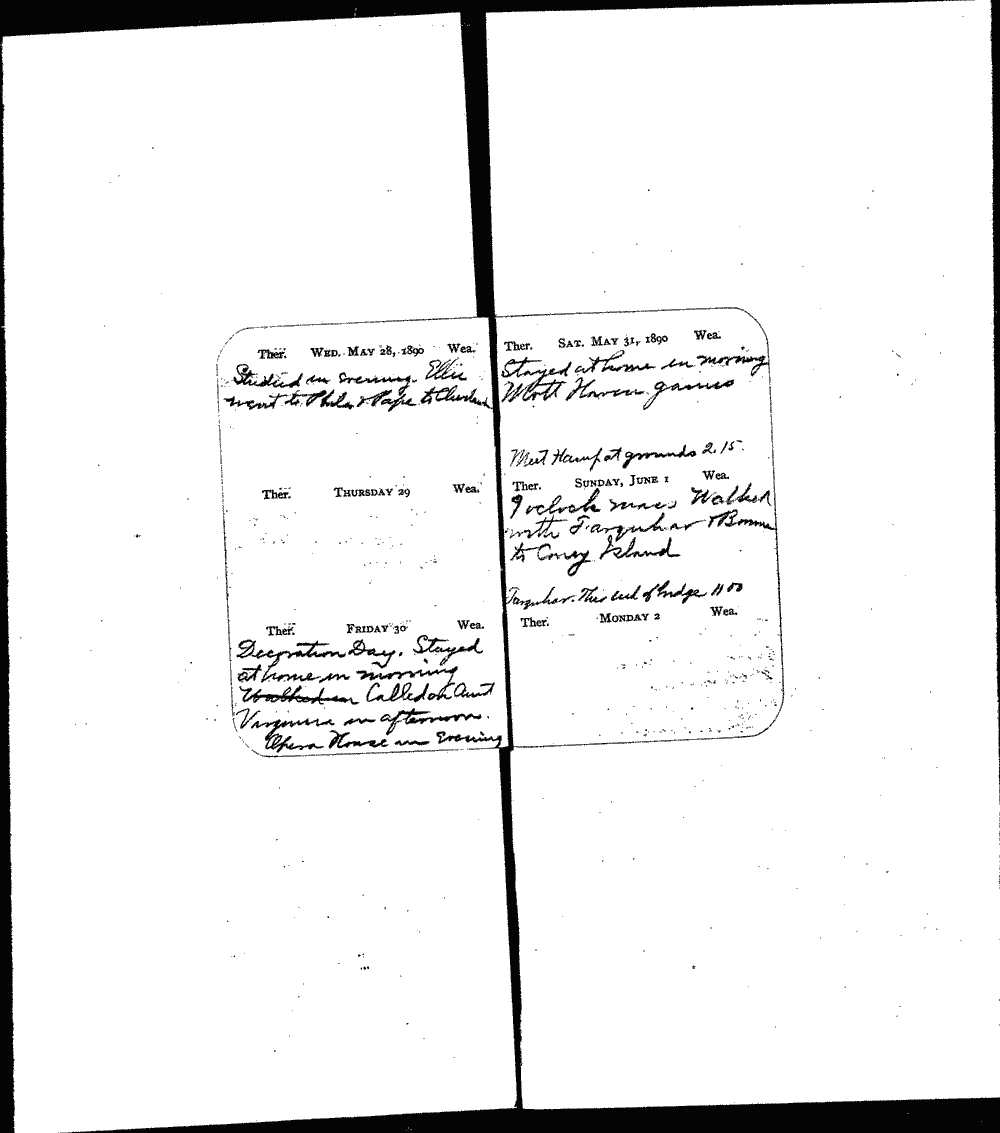 Ther. WED. MAY 28, 1890 Wea.
Studied in evening. Ellie
went to Phila & Papa to Cleveland
Ther. THURSDAY 29 Wea.
Ther. FRIDAY 30 Wea.
Decoration Day. Stayed
at home in morning
Walked in Called on Aunt
Virginia in afternoon.
Opera House in Evening
Ther. SAT. MAY 31, 1890 Wea.
Stayed at home in morning
Mott Haven games
Meet Hamp at grounds 2.15
Ther. SUNDAY, JUNE 1 Wea.
9 oclock mass Walked
with Farquhar &
to Coney Island
Farquhar. This end of bridge 11 00
Ther. MONDAY 2 Wea.